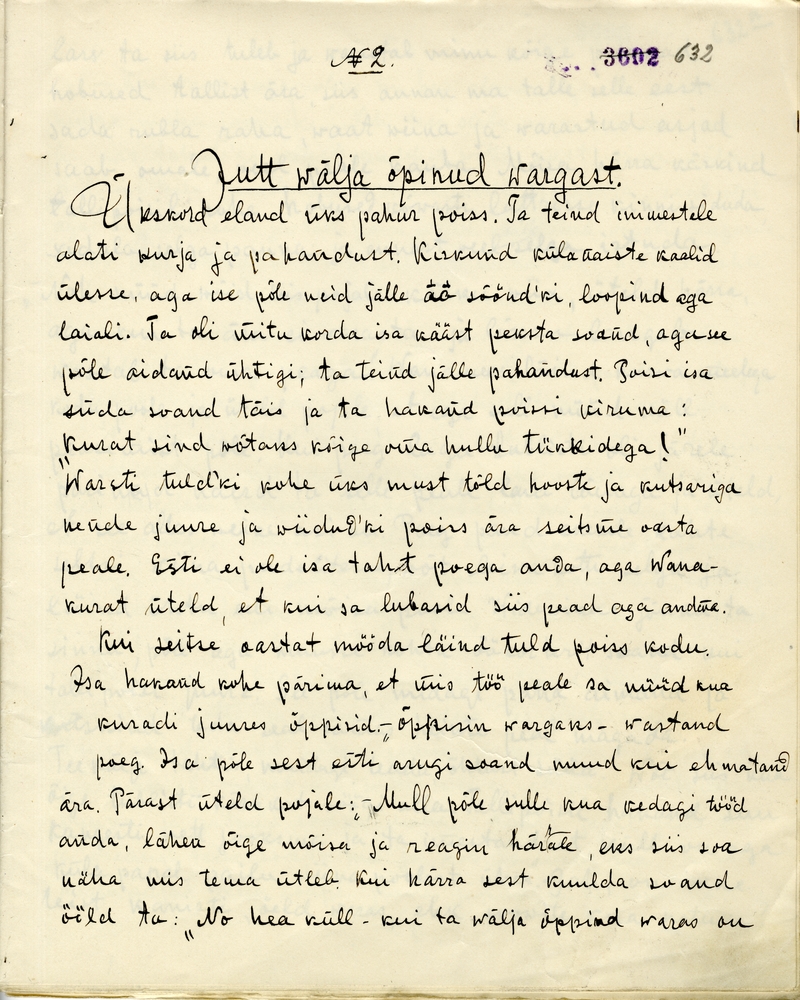 № 2.
3602 632
Jutt wälja õpinud wargast.
Ükskord eland üks pahur poiss. Ta teind inimestele
alati kurja ja pahandust. Kiskund külanaiste kaalid
ülesse, aga ise põle neid jälle ää söönd'ki, loopind aga
laiali. Ta oli mitu korda isa kääst peksta soand, aga see
põle aidand ühtigi; ta teind jälle pahandust. Poisi isa
süda soand täis ja ta hakand poissi kiruma:
„Kurat sind wõtaks kõige oma hullu tükkidega!"
Warsti tuld'ki kohe üks must tõld hooste ja kutsariga
nende juure ja wiidud'ki poiss ära seitsme oasta
peale. Esti ei ole isa taht poega anda, aga Wana-
kurat üteld, et kui sa lubasid siis pead aga andma.
Kui seitse oastat mööda läind tuld poiss kodu.
Isa hakand kohe pärima, et mis töö peale sa nüüd kua
kuradi juures õppisid. – „õppisin wargaks – wastand
poeg. Isa põle sest esiti arugi soand muud kui ehmatand
ära. Pärast üteld pojale: – „Mull põle sulle kua kedagi tööd
anda, lähen õige mõisa ja reagin härrale, eks siis soa
näha mis tema ütleb. Kui härra sest kuulda soand
ööld ta: „No hea küll – kui ta wälja õppind waras on